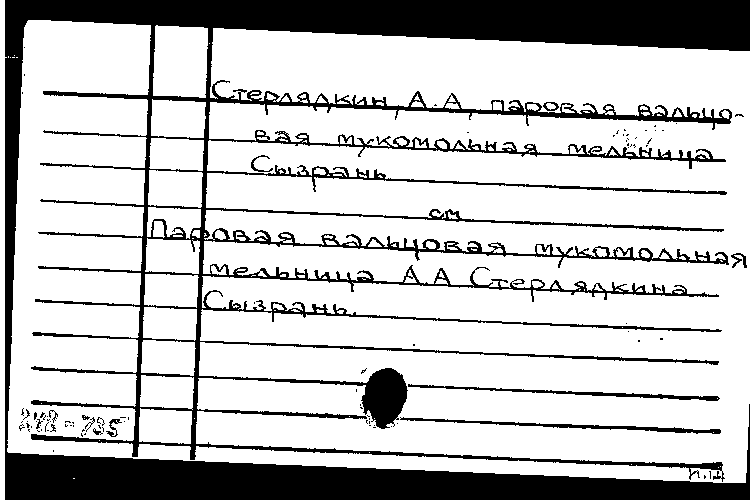 Стерлядкин, А.А, паровая вальцо-
вая мукомольная мельница
Сызрань
см
Паровая вальцовая мукомольная
мельница А.А Стерлядкина
Сызрань.
248-735